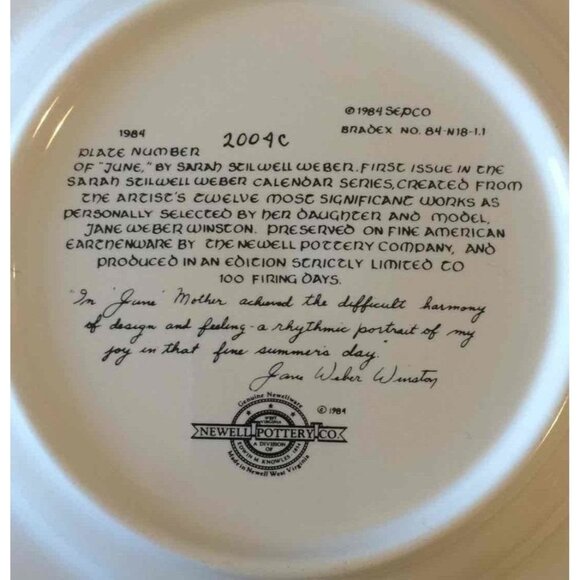 © 1984 SEPCO
1984
BRADEX NO. 84-N18-1.1
PLATE NUMBER 2004C
OF "JUNE," BY SARAH STILWELL WEBER. FIRST ISSUE IN THE
SARAH STILWELL WEBER CALENDAR SERIES, CREATED FROM
THE ARTIST'S TWELVE MOST SIGNIFICANT WORKS AS
PERSONALLY SELECTED BY HER DAUGHTER AND MODEL,
JANE WEBER WINSTON. PRESERVED ON FINE AMERICAN
EARTHENWARE BY THE NEWELL POTTERY COMPANY, AND
PRODUCED IN AN EDITION STRICTLY LIMITED TO
100 FIRING DAYS.
"In 'June' Mother achieved the difficult harmony
of design and feeling - a rhythmic portrait of my
joy in that fine summer's day."
Jane Weber Winston
© 1984
Genuine Newellware
WEST VIRGINIA
NEWELL POTTERY CO.
A DIVISION OF
EDWIN M. KNOWLES
Made in Newell West Virginia